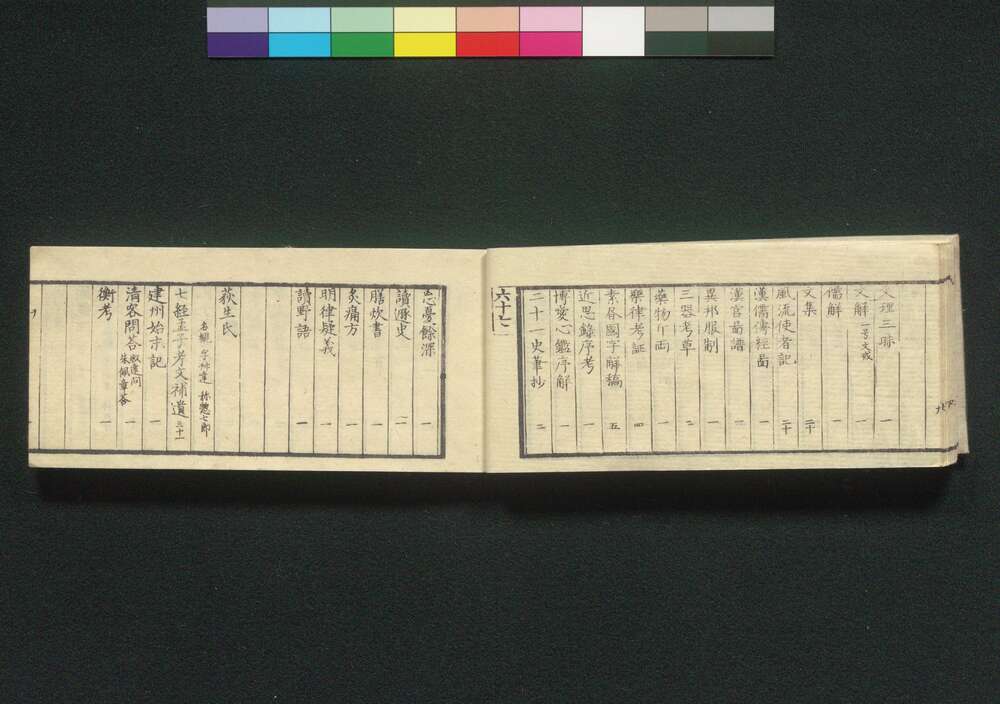 文理三昧 一
文解 一 一
儒解 一
文集 二十
風流使者記 二十
漢儒傳經圖 一
漢官啚譜 二
異邦服制 一
三器考草 二
藥物 一
樂律考証 四
素 國字解稿 五
近思錄序考 一
博愛心鑑序解 一
二十一史筆抄 二
六十七
忘憂餘深 一
讀遯史 二
膳炊書 一
灸痛方 一
明律疑義 一
讀野語 一
荻生氏
名觀 字叔達 称惣七郎
七經孟子考文補遺 三十一
建州始末記 一
清客問答 叔達問 朱佩章荅 一
衡考 一